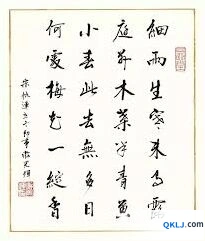 細雨生寒未有霜
庭前木葉半青黃
小春此去無多日
何處梅花一綻香
宋仇遠立冬即事
QKLJ.COM